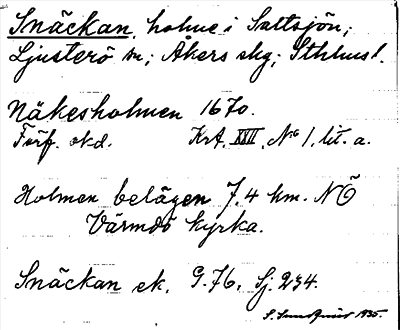 Snäckan, holme i Saltsjön;
Ljusterö sn; Åkers skg; Sthlms l.
Näkesholmen 1670.
Förf. okd. Krt. XVII, No 1, lit. a.
Holmen belägen 7,4 km. NÖ
Värmdö kyrka.
Snäckan ek. G. 76, Sj. 234.
S. 1935.